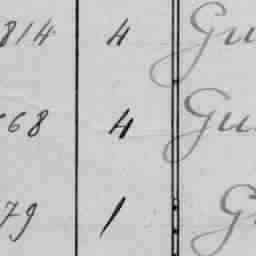 814 4 Gu
68 4 Gu
79 1 G